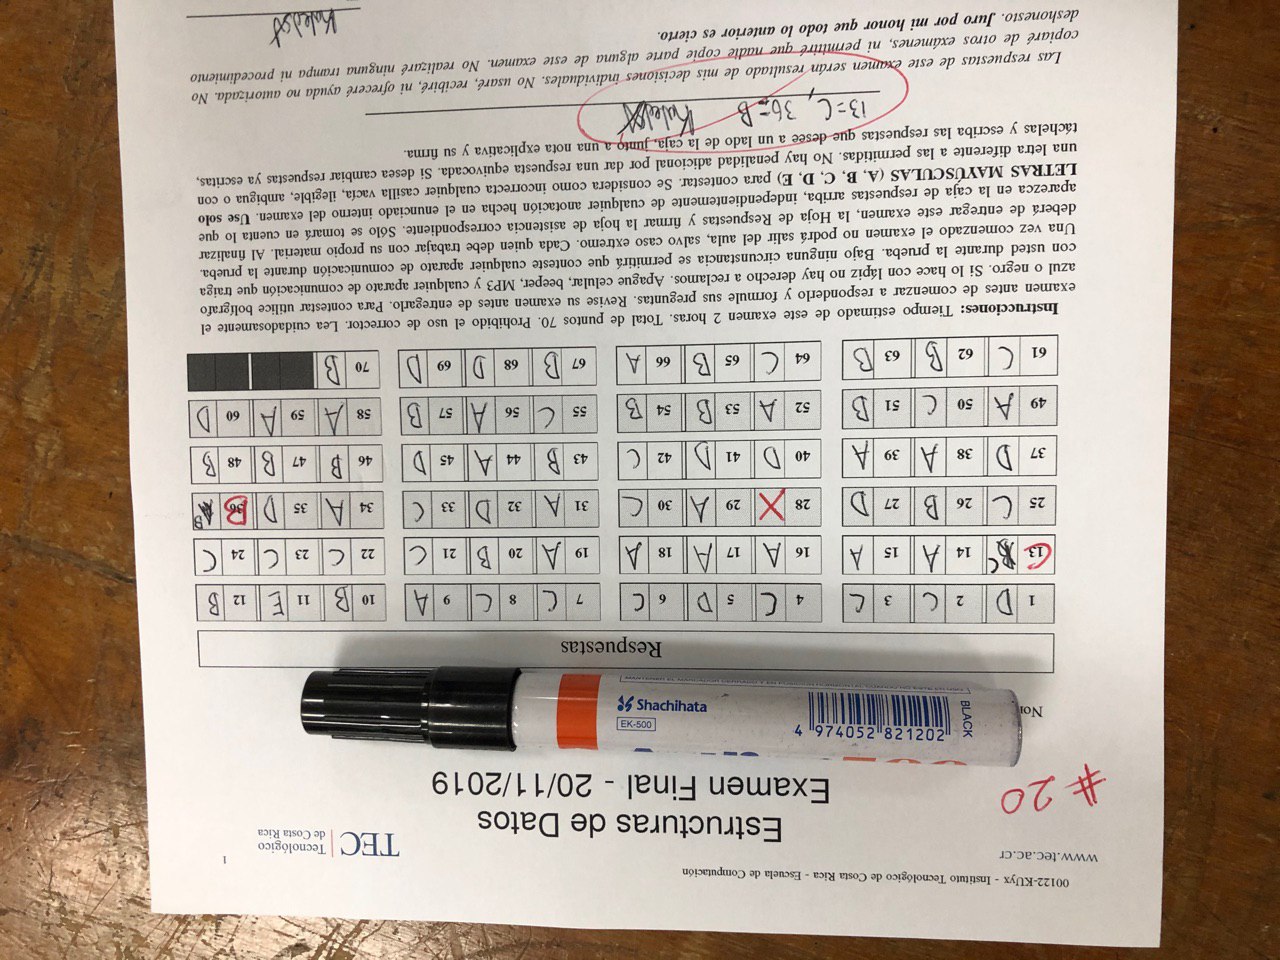 00122-KUyx - Instituto Tecnológico de Costa Rica - Escuela de Computación
1
www.tec.ac.cr
TEC Tecnológico
de Costa Rica
# 20
Estructuras de Datos
Examen Final - 20/11/2019
BLACK
4 974052 821202
Shachihata
EK-500
Respuestas
1 D 2 C 3 C 4 C 5 D 6 C 7 C 8 C 9 A 10 B 11 E 12 B
13 C 14 A 15 A 16 A 17 A 18 A 19 A 20 B 21 C 22 C 23 C 24 C
25 C 26 B 27 D 28 X 29 A 30 C 31 A 32 D 33 C 34 A 35 D 36 B
37 D 38 A 39 A 40 D 41 D 42 C 43 B 44 A 45 D 46 B 47 B 48 B
49 A 50 C 51 B 52 A 53 B 54 B 55 C 56 A 57 B 58 A 59 A 60 D
61 C 62 B 63 B 64 C 65 B 66 A 67 B 68 D 69 D 70 B
Instrucciones: Tiempo estimado de este examen 2 horas. Total de puntos 70. Prohibido el uso de corrector. Lea cuidadosamente el
examen antes de comenzar a responderlo y formule sus preguntas. Revise su examen antes de entregarlo. Para contestar utilice bolígrafo
azul o negro. Si lo hace con lápiz no hay derecho a reclamos. Apague celular, beeper, MP3 y cualquier aparato de comunicación que traiga
con usted durante la prueba. Bajo ninguna circunstancia se permitirá que conteste cualquier aparato de comunicación durante la prueba.
Una vez comenzado el examen no podrá salir del aula, salvo caso extremo. Cada quien debe trabajar con su propio material. Al finalizar
deberá de entregar este examen, la Hoja de Respuestas y firmar la hoja de asistencia correspondiente. Sólo se tomará en cuenta lo que
aparezca en la caja de respuestas arriba, independientemente de cualquier anotación hecha en el enunciado interno del examen. Use solo
LETRAS MAYÚSCULAS (A, B, C, D, E) para contestar. Se considera como incorrecta cualquier casilla vacía, ilegible, ambigua o con
una letra diferente a las permitidas. No hay penalidad adicional por dar una respuesta equivocada. Si desea cambiar respuestas ya escritas,
táchelas y escriba las respuestas que desee a un lado de la caja, junto a una nota explicativa y su firma.
13=C, 36=B
Las respuestas de este examen serán resultado de mis decisiones individuales. No usaré, recibiré, ni ofreceré ayuda no autorizada. No
copiaré de otros exámenes, ni permitiré que nadie copie parte alguna de este examen. No realizaré ninguna trampa ni procedimiento
deshonesto. Juro por mi honor que todo lo anterior es cierto.